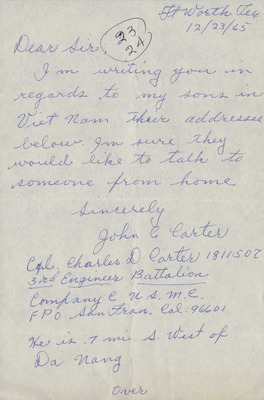 Ft Worth Tex
12/23/65
23
24
Dear Sir,
I m writing you in
regards to my sons in
Viet Nam Their addresses
below I m sure they
would like to talk to
someone from home
Sincerely
John E Carter
Cpl. Charles D Carter 1811507
3rd Engineer Battalion
Company C U S. M. C.
F P O San Fran, Cal. 96601
He is 7 mi. S. West of
Da Nang
Over